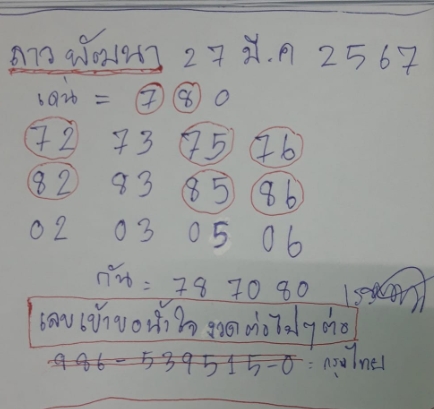 ลาว พัฒนา 27 มี.ค 2567
เด่น = 7 8 0
72 73 75 76
82 83 85 86
02 03 05 06
กัน = 78 70 80
เลขเข้าขอน้ำใจ งวดต่อไปๆ ต่อ
986-539515-0 = กรุงไทย